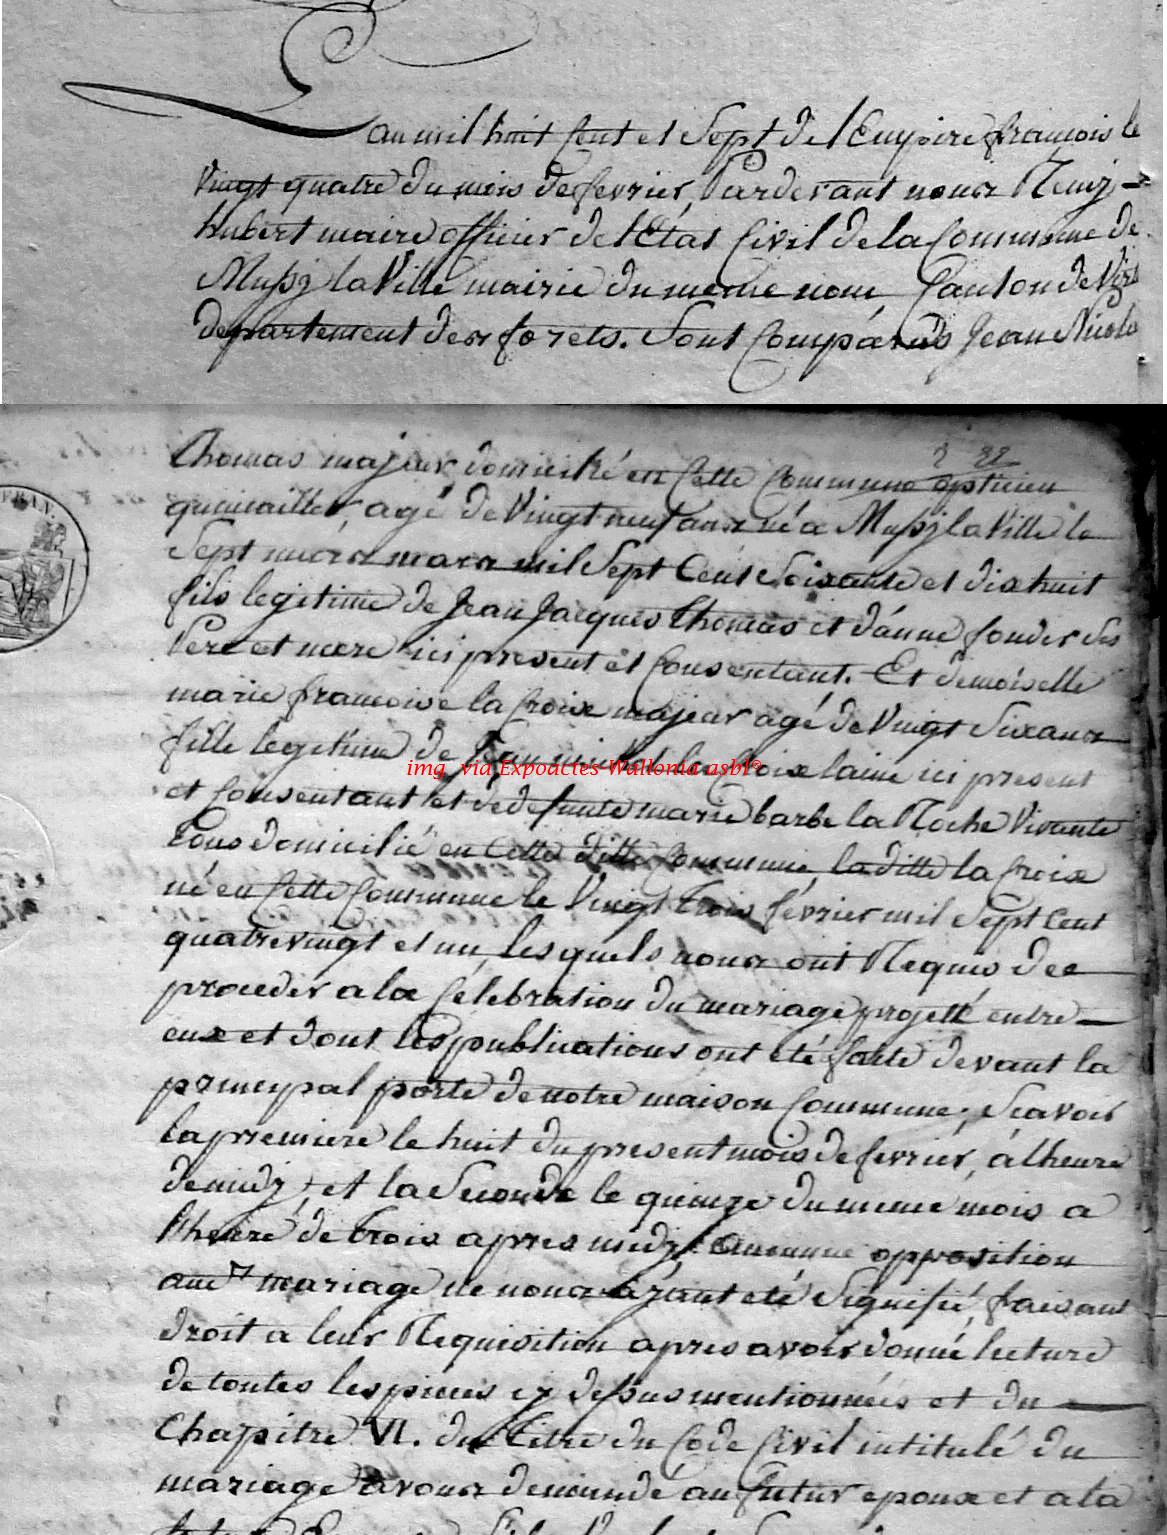 L'an mil huit Cent et Sept de l'Empire françois le
Vingt quatre du mois de fevrier, Pardevant nous Remij
hubert maire officier de l'Etat Civil de la Commune de
Mussij la Ville mairie du meme nom Canton de Virt
departement des forets. Sont Comparus Jean Nicola
Thomas majeur, domicilié en Cette Commune opticien
quincailler, agé de Vingt neuf ans né a Mussij la Ville le
Sept mars mil Sept Cent Soixante et dix huit
fils legitime de Jean Jacques Thomas et d'anne fonder Ses
Pere et mere ici present et Consentant. Et demoiselle
marie francoise la Croix majeur agé de Vingt Six ans
fille legitime de la Croix lainé ici present
img via Expoactes Wallonia asbl©
et Consentant et de defunte marie barbe la Roche Vivante
tous domicilié en Cette ditte Commune, la ditte la Croix
né en Cette Commune le Vingt trois février mil Sept Cent
quatrevingt et un, les quels nous ont Requis de
proceder a la Celebration du mariage projetté entre
eux et dont les publications ont eté faite devant la
principal porte de notre maison Commune; Scavoir
la premiere le huit du present mois de fevrier, à l'heure
de midij, et la Seconde le quinze du meme mois a
l'heure de trois apres midij. aucunne opposition
audt mariage ne nous aÿant eté Signifié, faisant
droit a leur Requisition apres avoir donné lecture
de toutes les pieces cy dessus mentionnées et du
Chapitre VI. du titre du Code Civil intitulé du
mariage avons demandé au futur epoux et a la